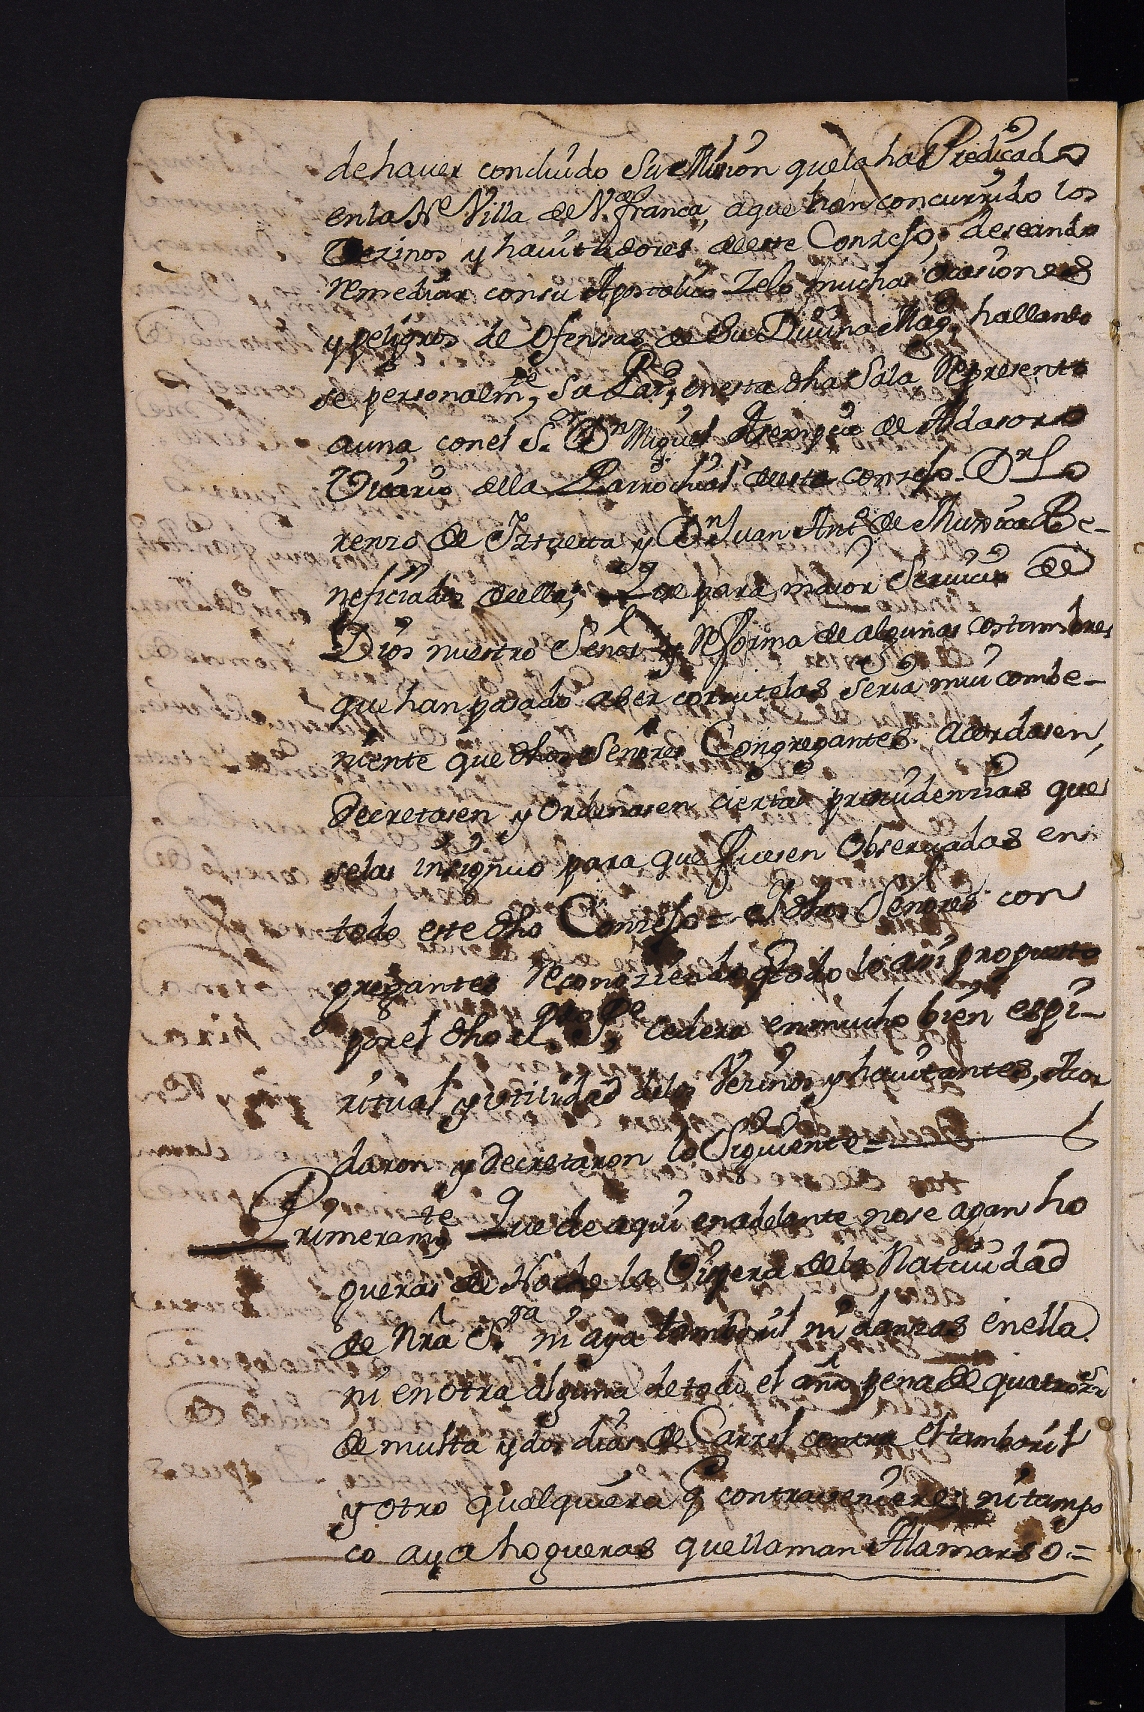 de haver concluido Su Mision que la ha Predicado
en la Nle Villa de Va franca, a que han concurrido los
Vezinos y havitadores deeste Conzejo, deseando
Remediar con su Apostolico Zelo muchas ocasiones
y peligros de Ofensas de Su Divina Magd, hallando
se personalmte, Sa Pard, en esta dha Sala Represento
a una con el Sor Dn Miguel de Aldasoro
Vicario della Parrochial deeste conzejo Dn Lo
renzo de y Dn Juan Anto de Muxica Be-
neficiados deella; Que para maior Servicio de
Dios nuestro Señor y Reforma de algunas costumbres
que han pasado a ser corrutelas seria mui combe-
niente que dhos Señores Congregantes acordasen,
Decretasen y Ordenasen ciertas providenzias que
se las insignuo para que fuesen Observadas en
todo este dho Conzejo = el dhos Señores con
gregantes Reconoziendo q todo lo assi propuesto
por el dho Rdo Pe, cedera en mucho bien espi-
ritual y utilidad de los Vezinos y havitantes, Acor
daron y Decretaron lo Siguiente =
Primeramte Que de aqui en adelante no se agan ho
gueras de Noche la Vispera de la Natividad
de Nra Sra ni aya tamboril ni danzas en ella
ni en otra alguna de todo el año pena de quatro rs
de multa y dos dias de Carzel contra el tamboril
y otro qualquiera q contraveniere; ni tampo
co aya hogueras que llaman Alamarso =